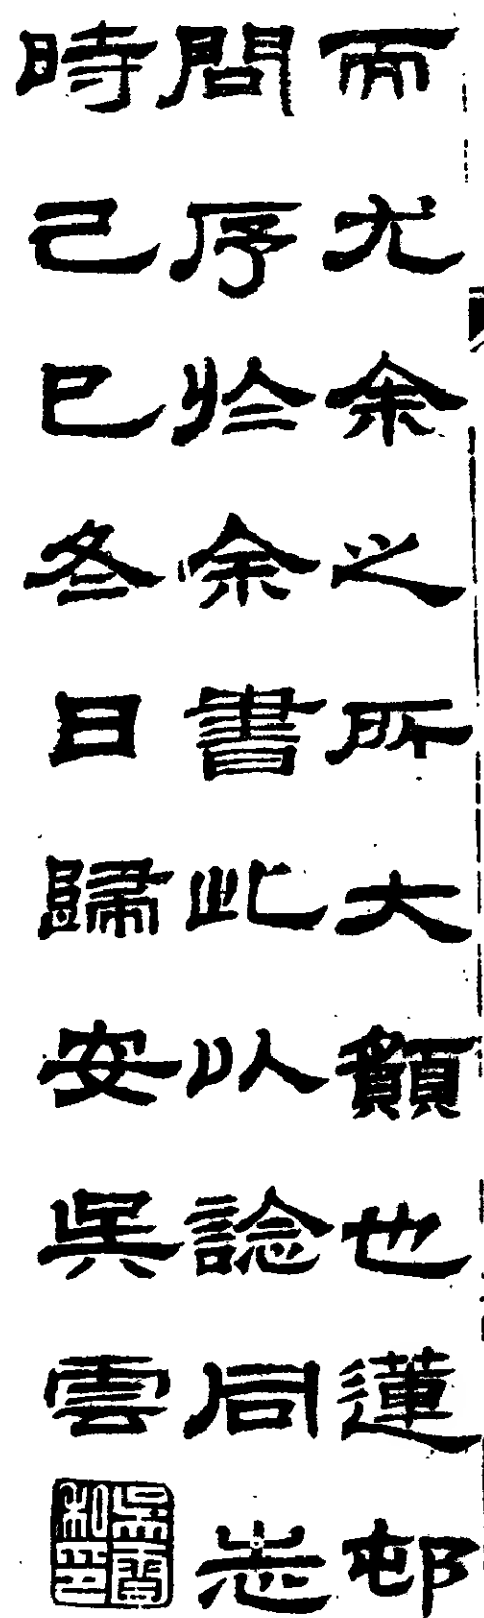 而尤余之所大願也蓮邨
問序於余書此以諗同志
時己巳冬日歸安吳雲